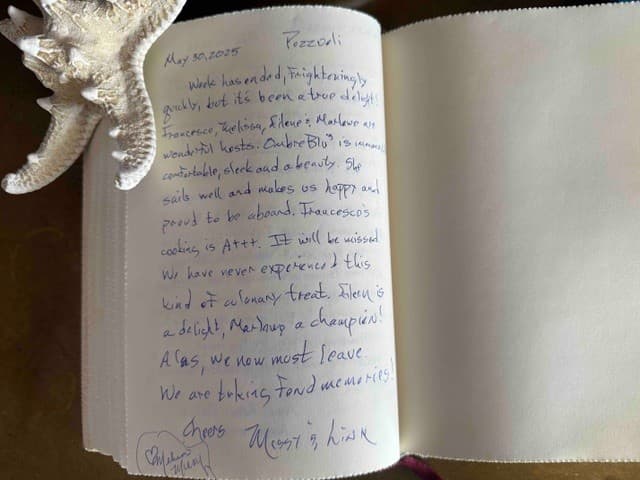 May 30, 2025 Pozzouli
Week has ended, Frighteningly
quickly, but it's been a true delight!
Francesco, Melissa, Eilene & Marlowe are
wonderful hosts. OmbreBlu³ is
comfortable, sleek and a beauty. She
sails well and makes us happy and
proud to be aboard. Francesco's
cooking is A+++. It will be missed
We have never experienced this
kind of culanary treat. is
a delight, a champion!
Alas, we now must leave
We are taking fond memories!
Cheers Missy & Link